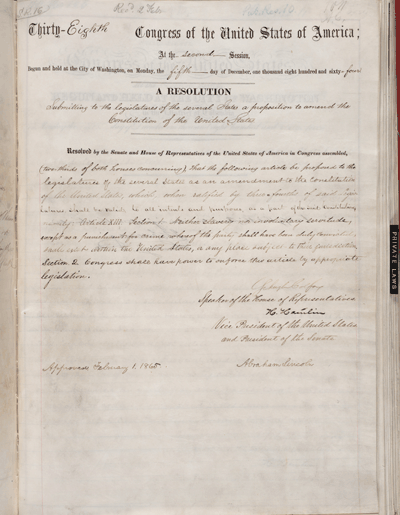 Thirty-Eighth Congress of the United States of America;
At the second Session,
Begun and held at the City of Washington, on Monday, the fifth day of December, one thousand eight hundred and sixty-four
A RESOLUTION
Submitting to the legislatures of the several States a proposition to amend the
Constitution of the United States.
Resolved by the Senate and House of Representatives of the United States of America in Congress assembled,
(two-thirds of both houses concurring), that the following article be proposed to the
legislatures of the several States as an amendment to the constitution
of the United States, which, when ratified by three-fourths of said legis-
latures shall be valid, to all intents and purposes, as a part of the said constitution
namely: Article XIII. Section 1. Neither slavery nor involuntary servitude,
except as a punishment for crime whereof the party shall have been duly convict-
ed, shall exist within the United States, or any place subject to their jurisdiction.
Section 2. Congress shall have power to enforce this article by appropriate
legislation.
Schuyler Colfax
Speaker of the House of Representatives
H. Hamlin
Vice President of the United States
and President of the Senate
Approved February 1, 1865.
Abraham Lincoln
PRIVATE LAWS